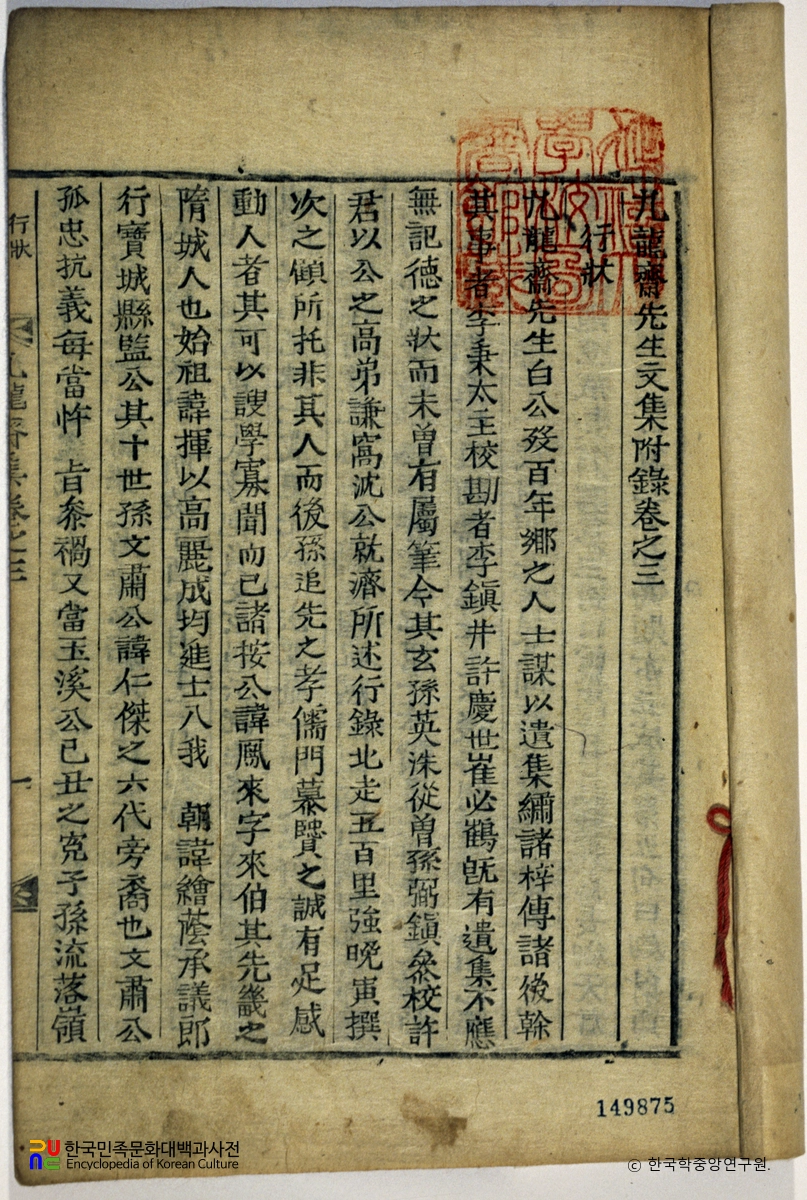 九龍齋先生文集附錄卷之三
行狀
九龍齋先生白公歿百年鄉之人士謀以遺集繡諸梓傳諸後幹
其事者李秉太主校勘者李鎭井許慶世崔必鶴旣有遺集不應
無記德之狀而未曾有屬筆今其玄孫英洙從曾孫弼鎭叅校許
君以公之高弟謙窩沈公就濟所述行錄北走五百里強晩寅撰
次之顧所托非其人而後孫追先之孝儒門慕賢之誠有足感
動人者其可以謏學寡聞而已諸按公諱鳳來字來伯其先畿之
隋城人也始祖諱揮以高麗成均進士入我 朝諱繪蔭承議郎
行寶城縣監公其十世孫文肅公諱仁傑之六代旁裔也文肅公
孤忠抗義每當忤 旨叅禍又當玉溪公己丑之寃子孫流落嶺
行狀
九龍齋集卷之三
一
149875
한국민족문화대백과사전
Encyclopedia of Korean Culture
© 한국학중앙연구원.